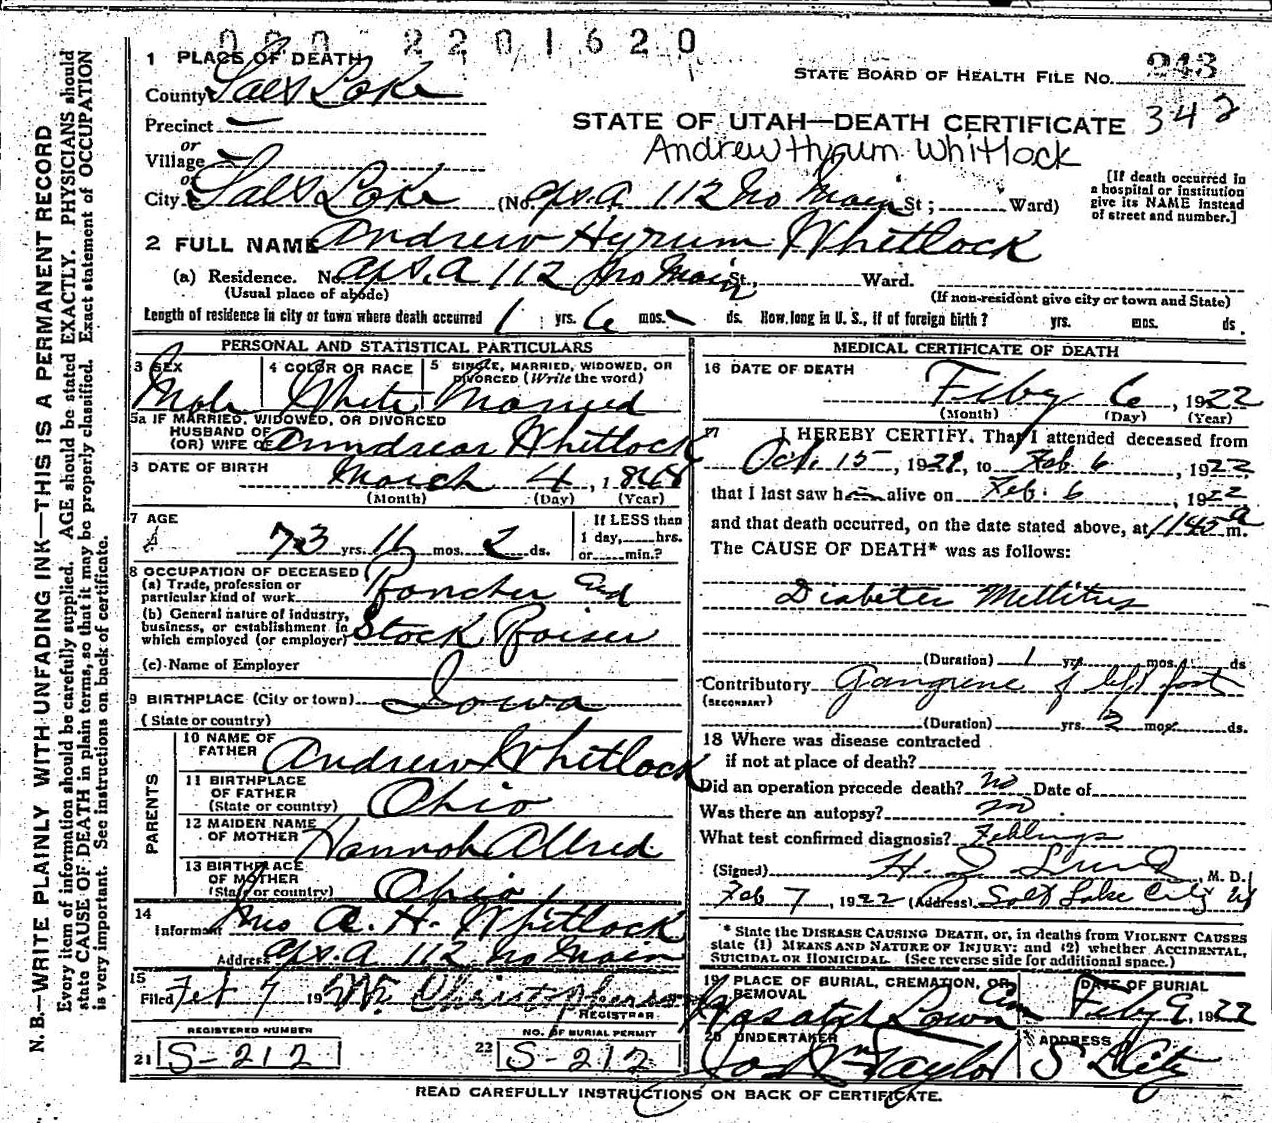 000 2201620
1 PLACE OF DEATH
STATE BOARD OF HEALTH FILE NO. 243
County Salt Lake
342
Precinct —
STATE OF UTAH—DEATH CERTIFICATE
or
Andrew Hyrum Whitlock
Village —
or
City Salt Lake (No. Aps. A 112 No Main St; Ward)
[If death occurred in
a hospital or institution
give its NAME instead
of street and number.]
2 FULL NAME Andrew Hyrum Whitlock
(a) Residence. No. Aps. A 112 No Main St., Ward.
(Usual place of abode) (If non-resident give city or town and State)
Length of residence in city or town where death occurred 1 yrs. 6 mos. - ds. How long in U. S., if of foreign birth? yrs. mos. ds.
PERSONAL AND STATISTICAL PARTICULARS
3 SEX 4 COLOR OR RACE 5 SINGLE, MARRIED, WIDOWED, OR
DIVORCED (Write the word)
Male White Married
5a IF MARRIED, WIDOWED, OR DIVORCED
HUSBAND OF
(OR) WIFE OF Whitlock
6 DATE OF BIRTH March 4, 1848
(Month) (Day) (Year)
7 AGE
73 yrs. 11 mos. 2 ds.
If LESS than
1 day, hrs.
or min.?
8 OCCUPATION OF DECEASED
(a) Trade, profession or
particular kind of work Rancher and
(b) General nature of industry,
business, or establishment in
which employed (or employer) Stock Raiser
(c) Name of Employer
9 BIRTHPLACE (City or town) Iowa
(State or country)
PARENTS
10 NAME OF
FATHER Andrew Whitlock
11 BIRTHPLACE
OF FATHER
(State or country) Ohio
12 MAIDEN NAME
OF MOTHER Hannah Allred
13 BIRTHPLACE
OF MOTHER
(State or country) Ohio
14
Informant Mrs A. H. Whitlock
Address Aps. A 112 No Main
15
Filed Feb 7 19 Christopherson
REGISTRAR
REGISTERED NUMBER NO. OF BURIAL PERMIT
21 S-212 22 S-212
MEDICAL CERTIFICATE OF DEATH
16 DATE OF DEATH
Feby 6, 1922
(Month) (Day) (Year)
17 I HEREBY CERTIFY, That I attended deceased from
Oct. 15, 1921, to Feb 6, 1922
that I last saw him alive on Feb. 6, 1922
and that death occurred, on the date stated above, at 1145 a m.
The CAUSE OF DEATH* was as follows:
Diabetes Mellitus
(Duration) 1 yrs. mos. ds
Contributory Gangrene of left foot
(SECONDARY)
(Duration) yrs. 2 mos. ds.
18 Where was disease contracted
if not at place of death?
Did an operation precede death? no Date of
Was there an autopsy? no
What test confirmed diagnosis? Fehlings
(Signed) H. Z. Lund, M. D.
Feb 7, 1922 (Address) Salt Lake City Ut
* State the DISEASE CAUSING DEATH, or, in deaths from VIOLENT CAUSES
state (1) MEANS AND NATURE OF INJURY; and (2) whether ACCIDENTAL,
SUICIDAL OR HOMICIDAL. (See reverse side for additional space.)
19 PLACE OF BURIAL, CREMATION, OR
REMOVAL
DATE OF BURIAL
Wasatch Lawn Cem Feby 9, 1922
20 UNDERTAKER ADDRESS
Jos Wm Taylor S L City
READ CAREFULLY INSTRUCTIONS ON BACK OF CERTIFICATE.
N. B.—WRITE PLAINLY WITH UNFADING INK—THIS IS A PERMANENT RECORD
Every item of information should be carefully supplied. AGE should be stated EXACTLY. PHYSICIANS should
state CAUSE OF DEATH in plain terms, so that it may be properly classified. Exact statement of OCCUPATION
is very important. See instructions on back of certificate.